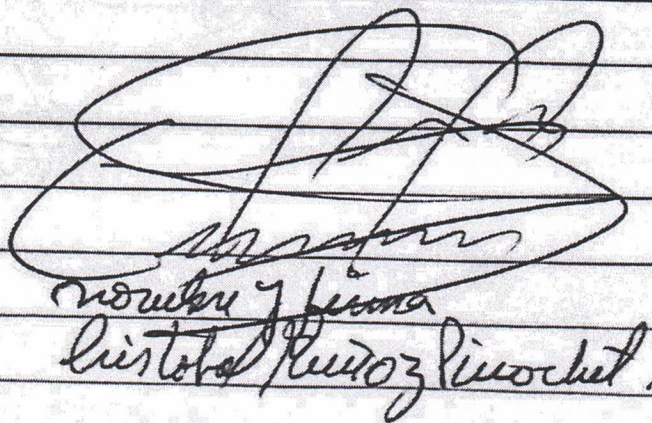 nombre y firma
Cristobal Muñoz Pinochet.